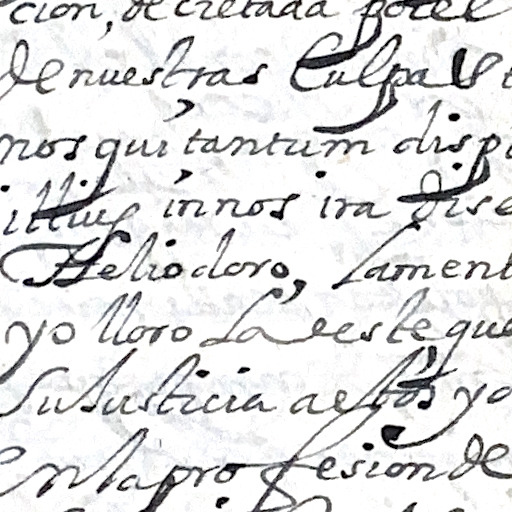 cion, decretada por el
de nuestras Culpas
nos qui tantum disp
illius in nos ira dise
Heliodoro, Lament
yo lloro La este que
su Justicia a estos yo
en la profesion de